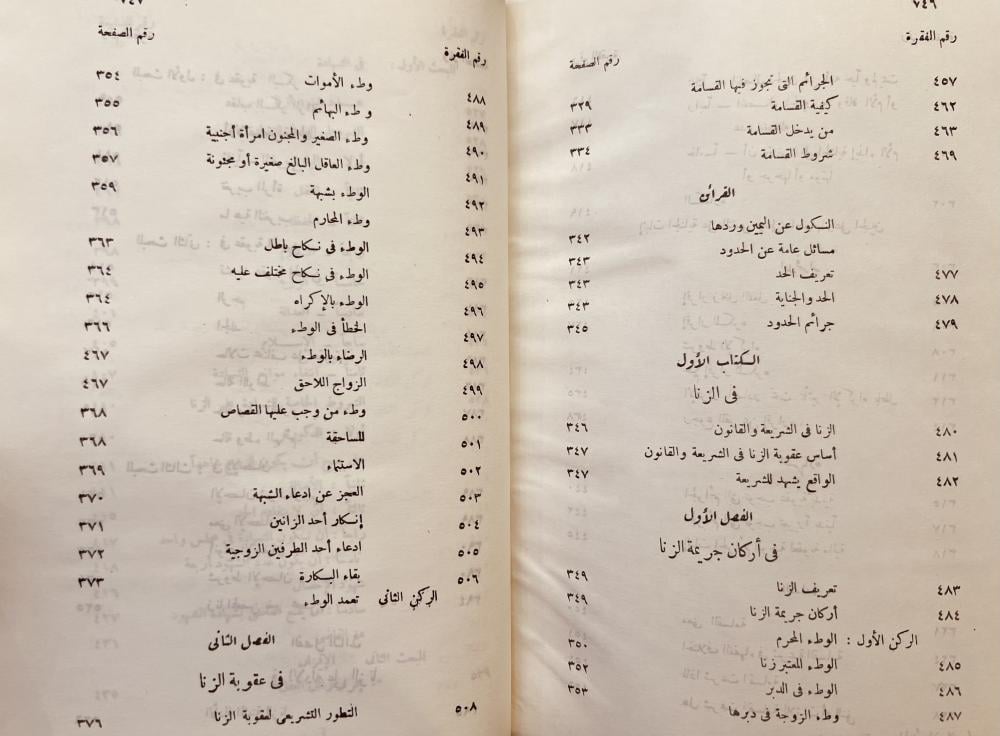 ٧٤٦
رقم الفقرة رقم الصفحة
٤٥٧ الجرائم التى تجوز فيها القسامة
٤٦٢ كيفية القسامة ٣٢٩
٤٦٣ من يدخل القسامة ٣٣٣
٤٦٩ شروط القسامة ٣٣٤
القرائن
النكول عن اليمين وردها ٣٤٢
مسائل عامة عن الحدود ٣٤٣
٤٧٧ تعريف الحد ٣٤٣
٤٧٨ الحد والجناية ٣٤٣
٤٧٩ جرائم الحدود ٣٤٥
الكتاب الأول
فى الزنا
٤٨٠ الزنا فى الشريعة والقانون ٣٤٦
٤٨١ أساس عقوبة الزنا فى الشريعة والقانون ٣٤٧
٤٨٢ الواقع يشهد للشريعة ٣٤٧
الفصل الأول
فى أركان جريمة الزنا
٤٨٣ تعريف الزنا ٣٤٩
٤٨٤ أركان جريمة الزنا ٣٤٩
الركن الأول : الوطء المحرم ٣٥٠
٤٨٥ الوطء المعتبر زنا ٣٥٢
٤٨٦ الوطء فى الدبر ٣٥٣
٤٨٧ وطء الزوجة فى دبرها
٧٤٧
رقم الفقرة رقم الصفحة
٤٨٨ وطء الأموات ٣٥٤
٤٨٩ وطء البهائم ٣٥٥
٤٩٠ وطء الصغير والمجنون امرأة أجنبية ٣٥٦
٤٩١ وطء العاقل البالغ صغيرة أو مجنونة ٣٥٧
٤٩٢ الوطء بشبهة ٣٥٩
٤٩٣ وطء المحارم
٤٩٤ الوطء فى نكاح باطل ٣٦٣
٤٩٥ الوطء فى نكاح مختلف عليه ٣٦٤
٤٩٦ الوطء بالإكراه ٣٦٤
٤٩٧ الخطأ فى الوطء ٣٦٦
٤٩٨ الرضاء بالوطء ٤٦٧
٤٩٩ الزواج اللاحق ٤٦٧
٥٠٠ وطء من وجب عليها القصاص ٣٦٨
٥٠١ المساحقة ٣٦٨
٥٠٢ الاستمناء ٣٦٩
٥٠٣ العجز عن ادعاء الشبهة ٣٧٠
٥٠٤ إنكار أحد الزانين ٣٧١
٥٠٥ ادعاء أحد الطرفين الزوجية ٣٧٢
٥٠٦ بقاء البكارة ٣٧٣
الركن الثانى تعمد الوطء
الفصل الثانى
فى عقوبة الزنا
٥٠٨ التطور التشريعى لعقوبة الزنا ٣٧٦